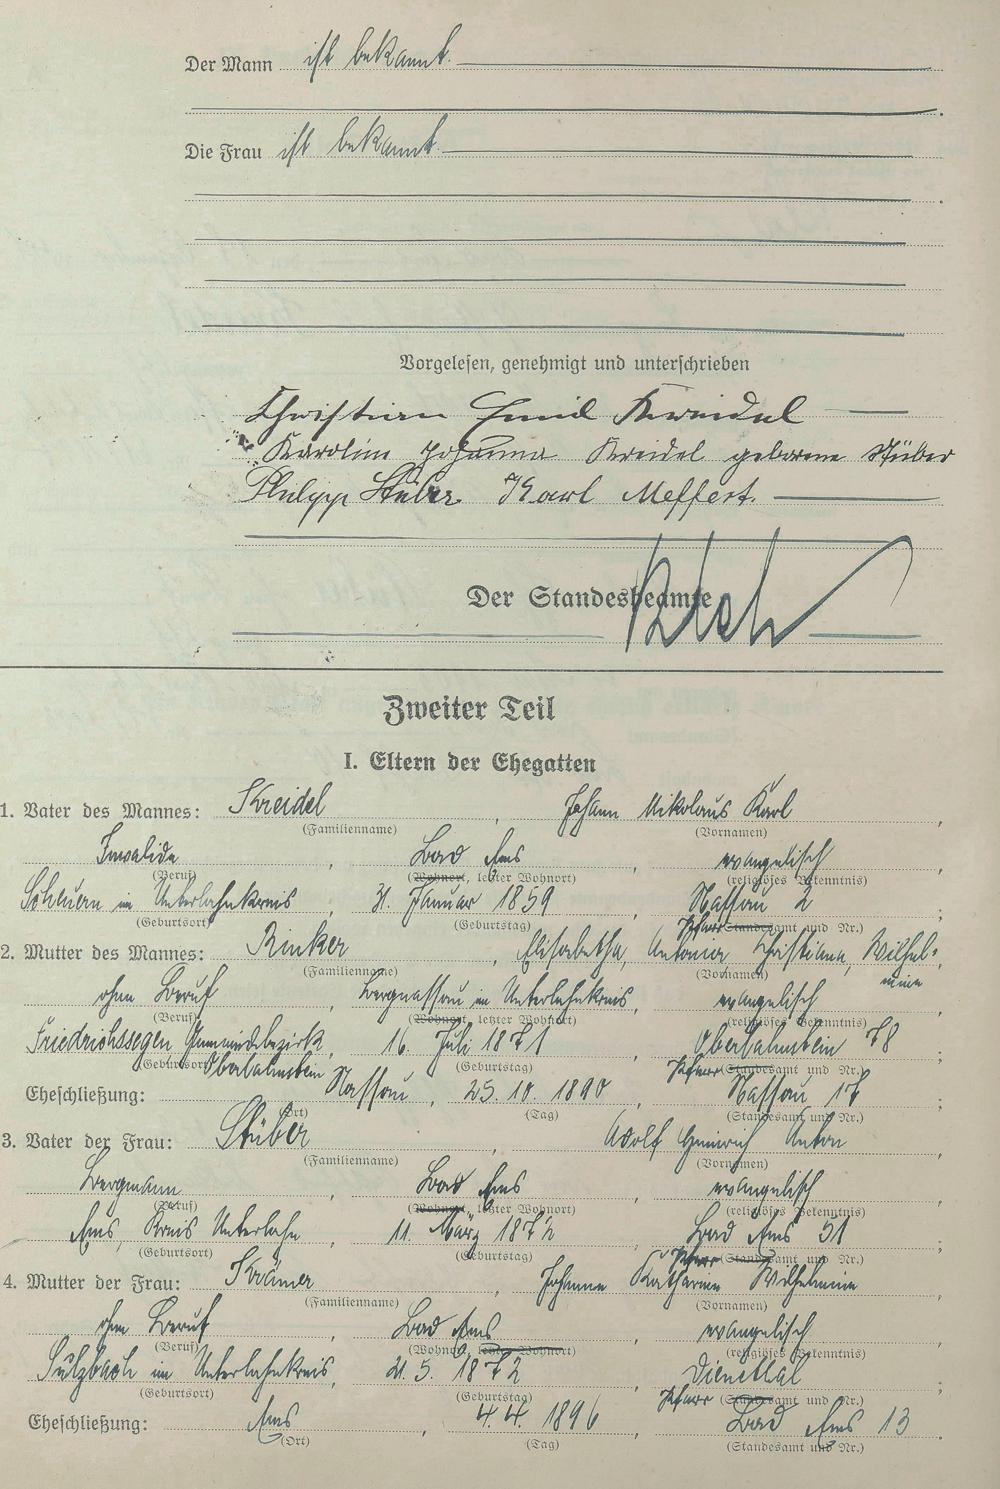 Der Mann ist bekannt.
Die Frau ist bekannt.
Vorgelesen, genehmigt und unterschrieben
Christian Emil Kreidel
Karoline Johanna Kreidel geborene Stüber
Philipp Stüber. Karl Meffert.
Der Standesbeamte
Zweiter Teil
I. Eltern der Ehegatten
1. Vater des Mannes: Kreidel, Johann Nikolaus Karl,
(Familienname) (Vornamen)
Invalide, Bad Ems, evangelisch
(Beruf) (Wohnort, letzter Wohnort) (religiöses Bekenntnis)
Scheuern im Unterlahnkreis, 31. Januar 1859, Nassau 2;
(Geburtsort) (Geburtstag) Pfarr (Standesamt und Nr.)
2. Mutter des Mannes: Rinker, Elisabetha, Antonia Christiana, Wilhel-
(Familienname) (Vornamen) mine
ohne Beruf, Bergnassau im Unterlahnkreis, evangelisch
(Beruf) (Wohnort, letzter Wohnort) (religiöses Bekenntnis)
Friedrichssegen Gemeindebezirk, 16. Juli 1871, Oberlahnstein 78;
(Geburtsort) Oberlahnstein (Geburtstag) Pfarr (Standesamt und Nr.)
Eheschließung: Nassau, 25. 10. 1890, Nassau 17;
(Ort) (Tag) (Standesamt und Nr.)
3. Vater der Frau: Stüber, Adolf Heinrich Anton,
(Familienname) (Vornamen)
Bergmann, Bad Ems, evangelisch,
(Beruf) (Wohnort, letzter Wohnort) (religiöses Bekenntnis)
Ems, Kreis Unterlahn, 11. März 1872, Bad Ems 51;
(Geburtsort) (Geburtstag) Pfarr (Standesamt und Nr.)
4. Mutter der Frau: Krämer, Johanna Katharina Wilhelmine,
(Familienname) (Vornamen)
ohne Beruf, Bad Ems, evangelisch,
(Beruf) (Wohnort, letzter Wohnort) (religiöses Bekenntnis)
Sulzbach im Unterlahnkreis, 21. 5. 1872, Dienethal;
(Geburtsort) (Geburtstag) Pfarr (Standesamt und Nr.)
Eheschließung: Ems, 4. 4. 1896, Bad Ems 13.
(Ort) (Tag) (Standesamt und Nr.)